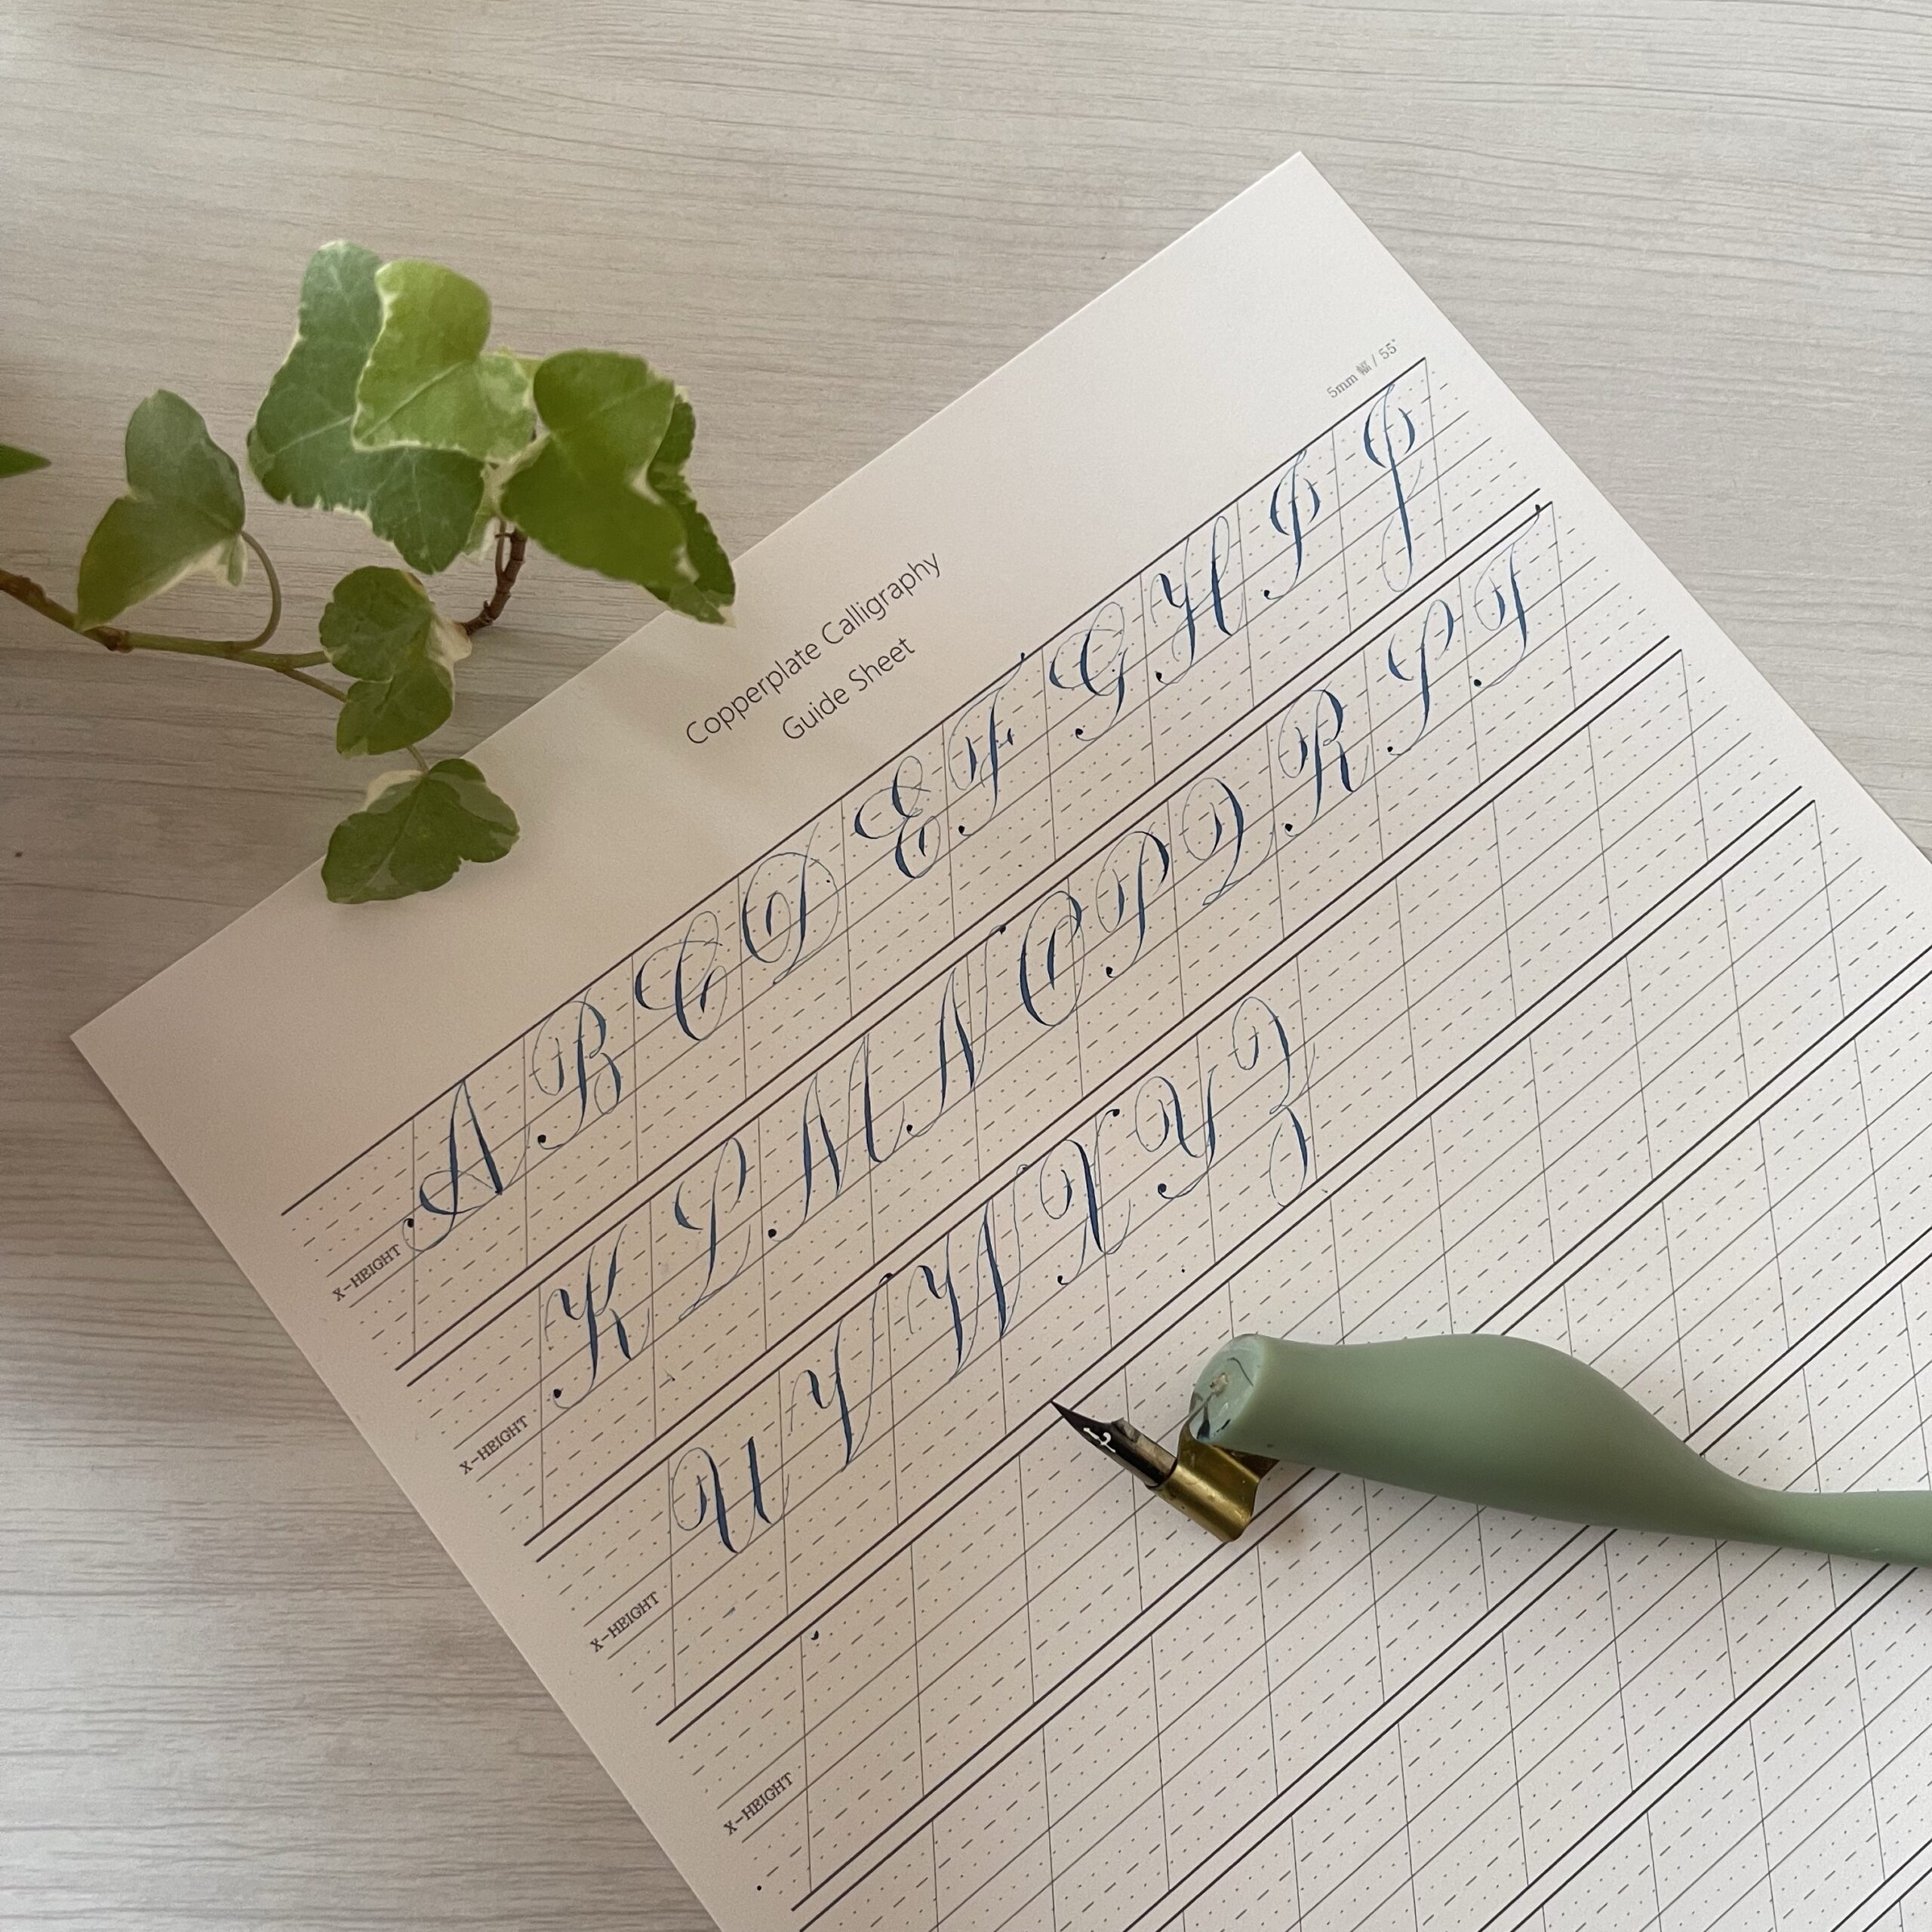 Copperplate Calligraphy
Guide Sheet
5mm 幅 / 55°
A B C D E F G H I J
X-HEIGHT
K L M N O P Q R S T
X-HEIGHT
U V W X Y Z
X-HEIGHT
X-HEIGHT